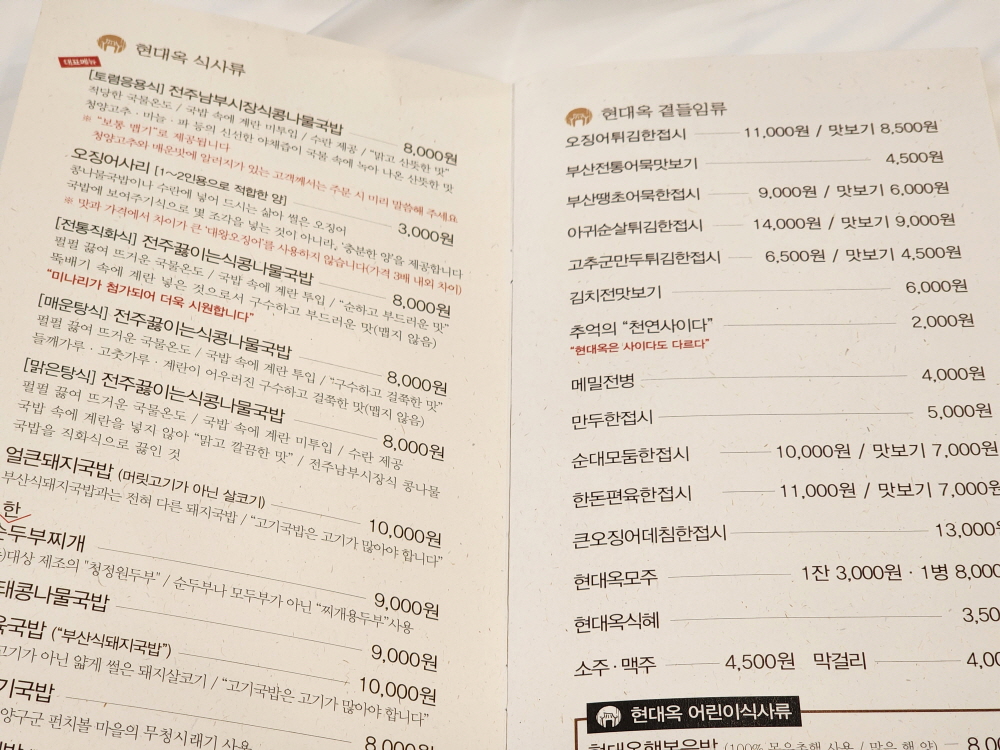 현대옥 식사류
대표메뉴
[토렴응용식] 전주남부시장식콩나물국밥 8,000원
적당한 국물온도 / 국밥 속에 계란 미투입 / 수란 제공 / "밝고 산뜻한 맛"
청양고추 · 마늘 · 파 등의 신선한 야채즙이 국물 속에 녹아 나온 산뜻한 맛
※ "보통 맵기"로 제공됩니다
청양고추와 매운맛에 알러지가 있는 고객께서는 주문 시 미리 말씀해 주세요
오징어사리 [1~2인용으로 적합한 양] 3,000원
콩나물국밥이나 수란에 넣어 드시는 삶아 썰은 오징어
국밥에 보여주기식으로 몇 조각을 넣는 것이 아니라, '충분한 양'을 제공합니다
※ 맛과 가격에서 차이가 큰 '대왕오징어'를 사용하지 않습니다(가격 3배 내외 차이)
[전통직화식] 전주끓이는식콩나물국밥 8,000원
펄펄 끓여 뜨거운 국물온도 / 국밥 속에 계란 투입 / "순하고 부드러운 맛"
뚝배기 속에 계란 넣은 것으로서 구수하고 부드러운 맛(맵지 않음)
"미나리가 첨가되어 더욱 시원합니다"
[매운탕식] 전주끓이는식콩나물국밥 8,000원
펄펄 끓여 뜨거운 국물온도 / 국밥 속에 계란 투입 / "구수하고 걸쭉한 맛"
들깨가루 · 고춧가루 · 계란이 어우러진 구수하고 걸쭉한 맛(맵지 않음)
[맑은탕식] 전주끓이는식콩나물국밥 8,000원
펄펄 끓여 뜨거운 국물온도 / 국밥 속에 계란 미투입 / 수란 제공
국밥 속에 계란을 넣지 않아 "맑고 깔끔한 맛" / 전주남부시장식 콩나물
국밥을 직화식으로 끓인 것
얼큰돼지국밥 (머릿고기가 아닌 살코기) 10,000원
부산식돼지국밥과는 전혀 다른 돼지국밥 / "고기국밥은 고기가 많아야 합니다"
한
순두부찌개 9,000원
)대상 제조의 "청정원두부" / 순두부나 모두부가 아닌 "찌개용두부"사용
태콩나물국밥 9,000원
육국밥 ("부산식돼지국밥") 10,000원
고기가 아닌 얇게 썰은 돼지살코기 / "고기국밥은 고기가 많아야 합니다"
기국밥 8,000원
양구군 펀치볼 마을의 무청시래기 사용
현대옥 곁들임류
오징어튀김한접시 11,000원 / 맛보기 8,500원
부산전통어묵맛보기 4,500원
부산땡초어묵한접시 9,000원 / 맛보기 6,000원
아귀순살튀김한접시 14,000원 / 맛보기 9,000원
고추군만두튀김한접시 6,500원 / 맛보기 4,500원
김치전맛보기 6,000원
추억의 "천연사이다" 2,000원
"현대옥은 사이다도 다르다"
메밀전병 4,000원
만두한접시 5,000원
순대모둠한접시 10,000원 / 맛보기 7,000원
한돈편육한접시 11,000원 / 맛보기 7,000원
큰오징어데침한접시 13,000원
현대옥모주 1잔 3,000원 · 1병 8,000
현대옥식혜 3,50
소주 · 맥주 4,500원 막걸리 4,00
현대옥 어린이식사류